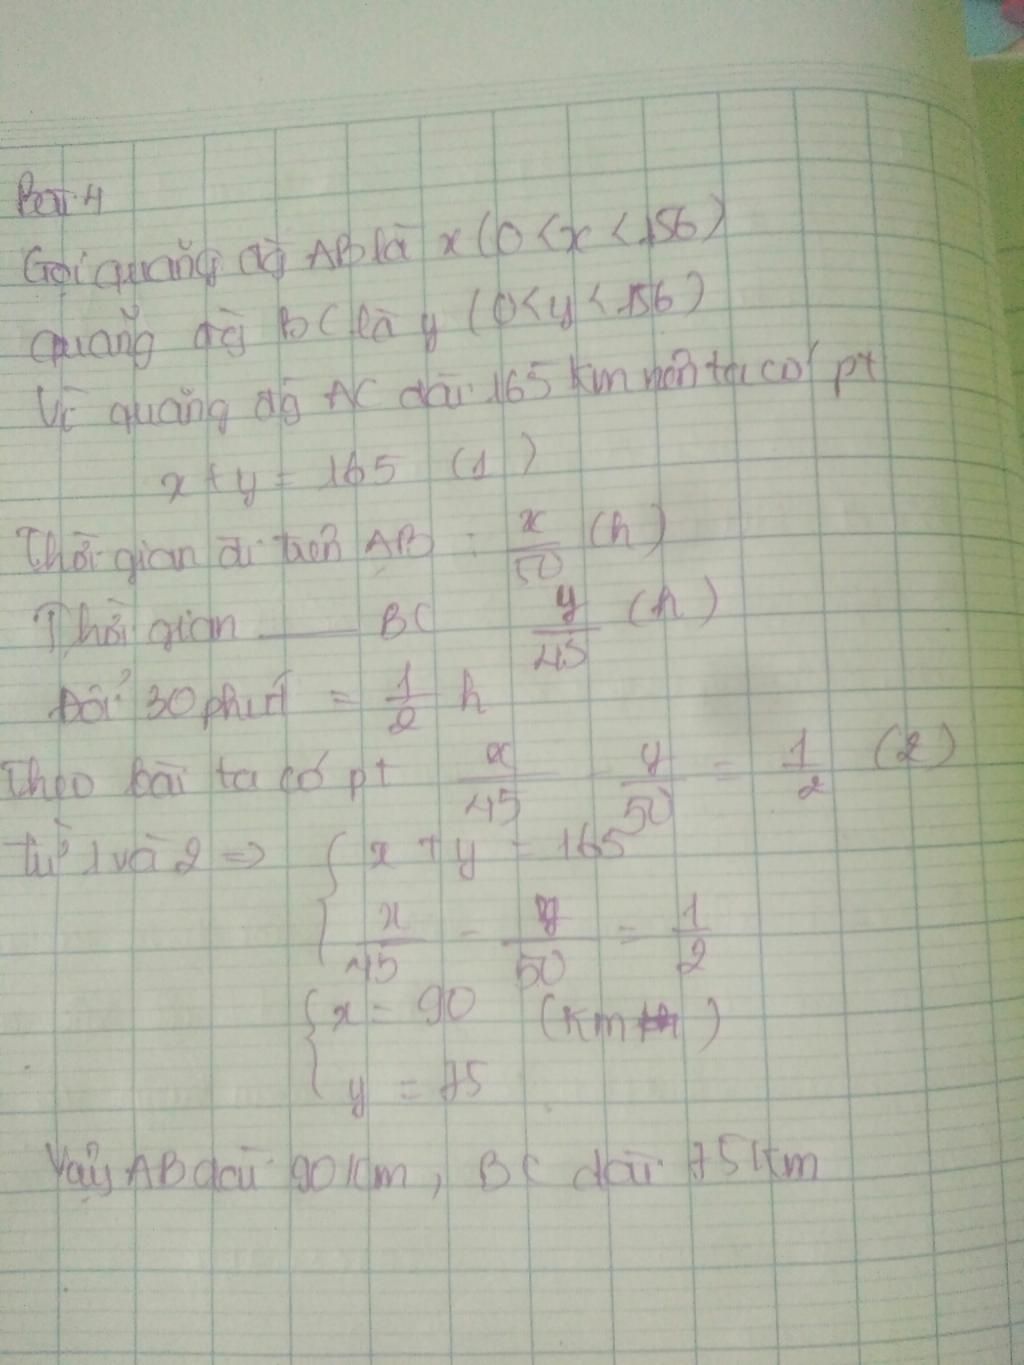 Bài 4
Gọi quãng đg AB là x (0 < x < 156)
quãng đg BC là y (0 < y < 156)
Vì quãng đg AC dài 165 km nên ta có pt
x + y = 165 (1)
Thời gian đi trên AB : x/50 (h)
Thời gian —— BC y/45 (h)
Đổi 30 phút = 1/2 h
Theo bài ta có pt x/45 - y/50 = 1/2 (2)
từ 1 và 2 => { x + y = 165
x/45 - y/50 = 1/2
{ x = 90 (km)
y = 75
Vậy AB dài 90 km, BC dài 75 km